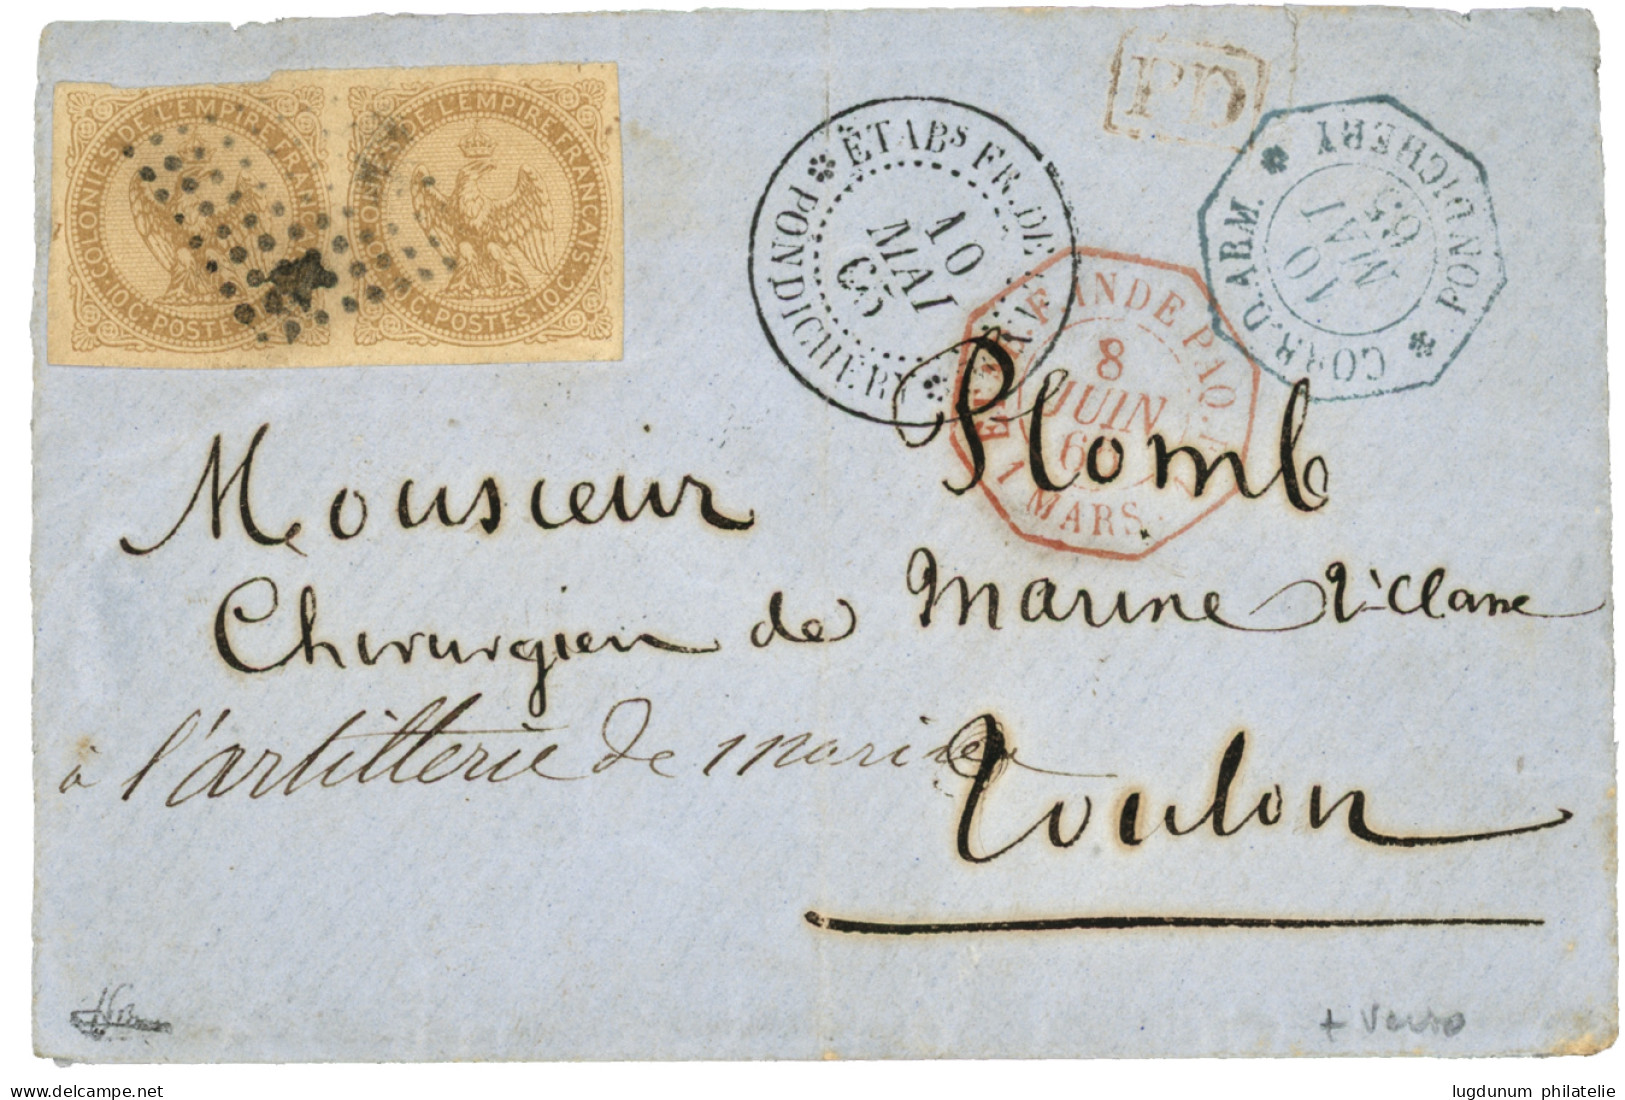 COLONIES DE L'EMPIRE FRANÇAIS
10 C. POSTES. 10 C.
COLONIES DE L'EMPIRE FRANÇAIS.
10 C. POSTES. 10 C.
ÉTABS FR. DE
PONDICHERY
10
MAI
65
PD
CORR. D. ARM.
PONDICHERY
10
MAI
65
INDE PAQ.
8
JUIN
MARS.
Monsieur Plomb
Chirurgien de Marine 2e Classe
à l'artillerie de marine
Toulon
+ Verso
delcampe.net
lugdunum philatelie